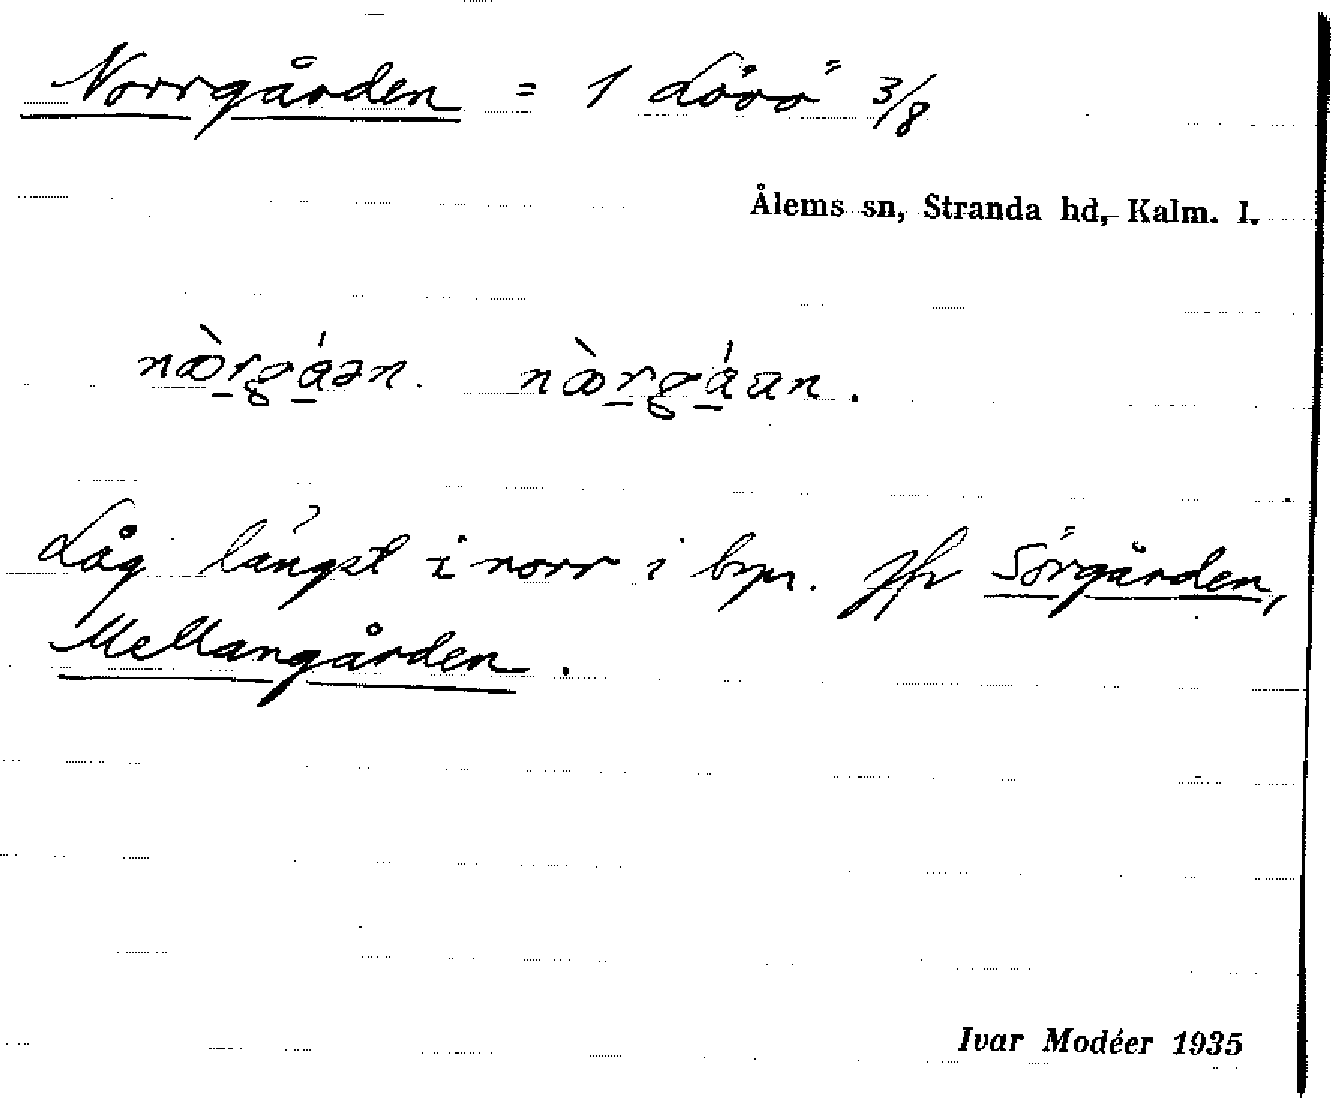 Norrgården = 1 Lövö 3/8
Ålems sn, Stranda hd, Kalm. l.
Låg längst i norr i byn. Jfr Sörgården,
Mellangården.
Ivar Modéer 1935